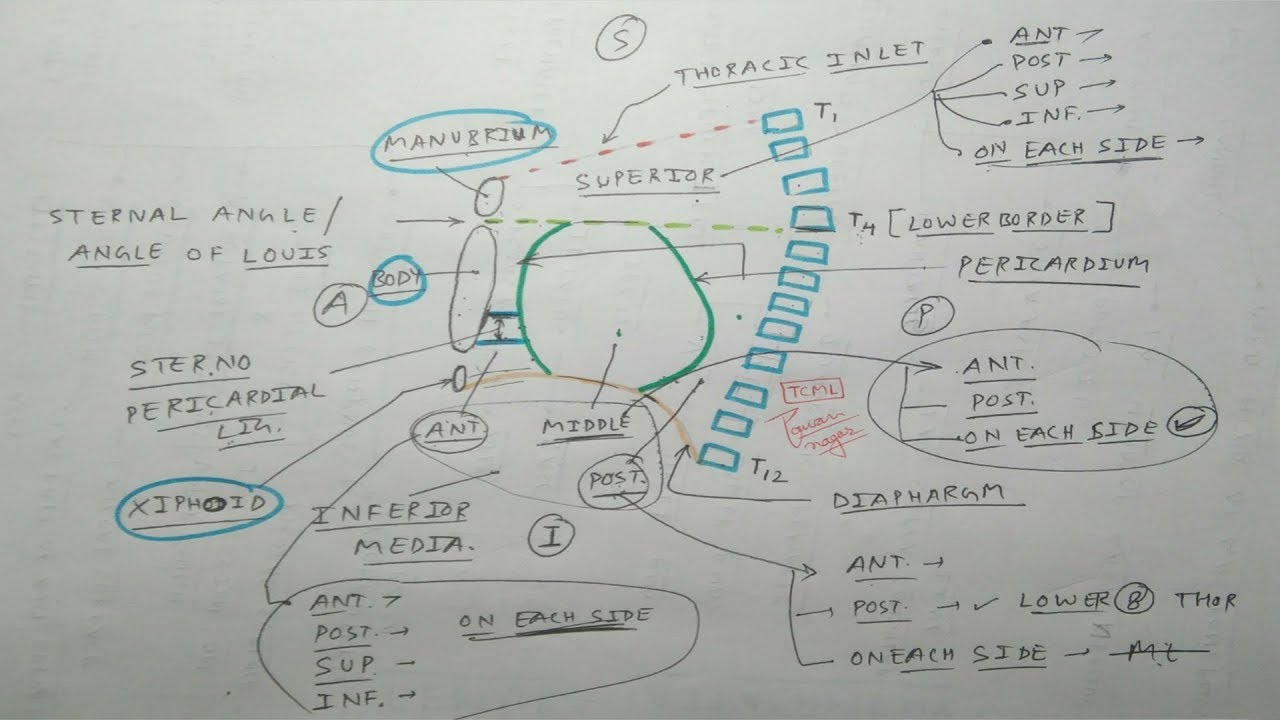 S
ANT
POST →
SUP →
INF. →
ON EACH SIDE →
THORACIC INLET
T1
MANUBRIUM
SUPERIOR
STERNAL ANGLE/
ANGLE OF LOUIS
T4 [LOWER BORDER]
PERICARDIUM
BODY
A
P
STER.NO
PERICARDIAL
LIG.
ANT.
POST.
ON EACH SIDE
TCML
Pawan
nagar
ANT
MIDDLE
POST.
T12
XIPHOID
DIAPHARGM
INFERIOR
MEDIA.
I
ANT. →
POST. → ✓ LOWER 8 THOR
ON EACH SIDE → ML
ANT. >
POST. → ON EACH SIDE
SUP -
INF. →